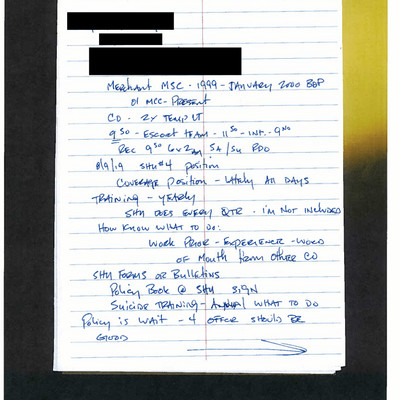 Merchant MSC - 1999 - January 2000 BOP
01 MCC - Present
CO - 2x Temp LT
9 50 - Escort Team - 11 50 - Int. - 9 00
Rec 9 50 6 x 2 SA/SU RDO
8/9/19 SHU #4 position
Coverage Position - Likely All Days
Training - Yearly
SHU does every QTR - I'm not included
How know what to do:
Work Prior - Experience - Word
of Mouth from other CO
SHU Forms or Bulletins
Policy Book @ SHU sign
Suicide Training - Annual what to do
Policy is wait - 4 officer should be
good